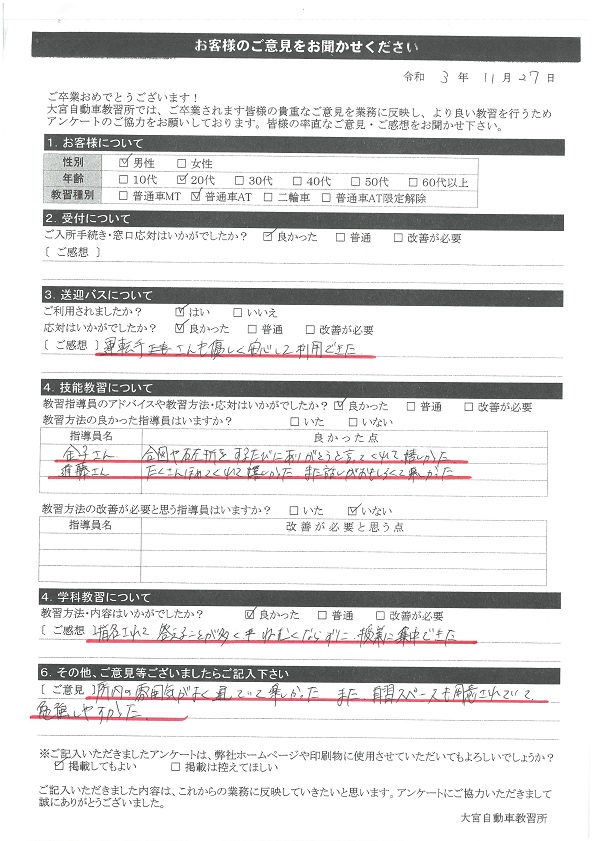 お客様のご意見をお聞かせください
令和 3 年 11 月 27 日
ご卒業おめでとうございます！
大宮自動車教習所では、ご卒業されます皆様の貴重なご意見を業務に反映し、より良い教習を行うため
アンケートのご協力をお願いしております。皆様の率直なご意見・ご感想をお聞かせ下さい。
1. お客様について
性別 ☑男性 □女性
年齢 □10代 ☑20代 □30代 □40代 □50代 □60代以上
教習種別 □普通車MT ☑普通車AT □二輪車 □普通車AT限定解除
2. 受付について
ご入所手続き・窓口応対はいかがでしたか？ ☑良かった □普通 □改善が必要
[ ご感想 ]
3. 送迎バスについて
ご利用されましたか？ ☑はい □いいえ
応対はいかがでしたか？ ☑良かった □普通 □改善が必要
[ ご感想 ] 運転手さんも優しく安心して利用できた
4. 技能教習について
教習指導員のアドバイスや教習方法・応対はいかがでしたか？ ☑良かった □普通 □改善が必要
教習方法の良かった指導員はいますか？ □いた □いない
指導員名 良かった点
金子さん 合図や右左折をするたびにありがとうと言ってくれて嬉しかった
近藤さん たくさんほめてくれて嬉しかった また話しがおもしろくて楽しかった
教習方法の改善が必要と思う指導員はいますか？ □いた ☑いない
指導員名 改善が必要と思う点
4. 学科教習について
教習方法・内容はいかがでしたか？ ☑良かった □普通 □改善が必要
[ ご感想 ] 指名されて答えることが多く ねむくならずに 授業に集中できた
6. その他、ご意見等ございましたらご記入下さい
[ ご意見 ] 所内の雰囲気がよく 楽しかった また 自習スペースも用意されていて
勉強しやすかった
※ご記入いただきましたアンケートは、弊社ホームページや印刷物に使用させていただいてもよろしいでしょうか？
☑掲載してもよい □掲載は控えてほしい
ご記入いただきました内容は、これからの業務に反映していきたいと思います。アンケートにご協力いただきまして
誠にありがとうございました。
大宮自動車教習所